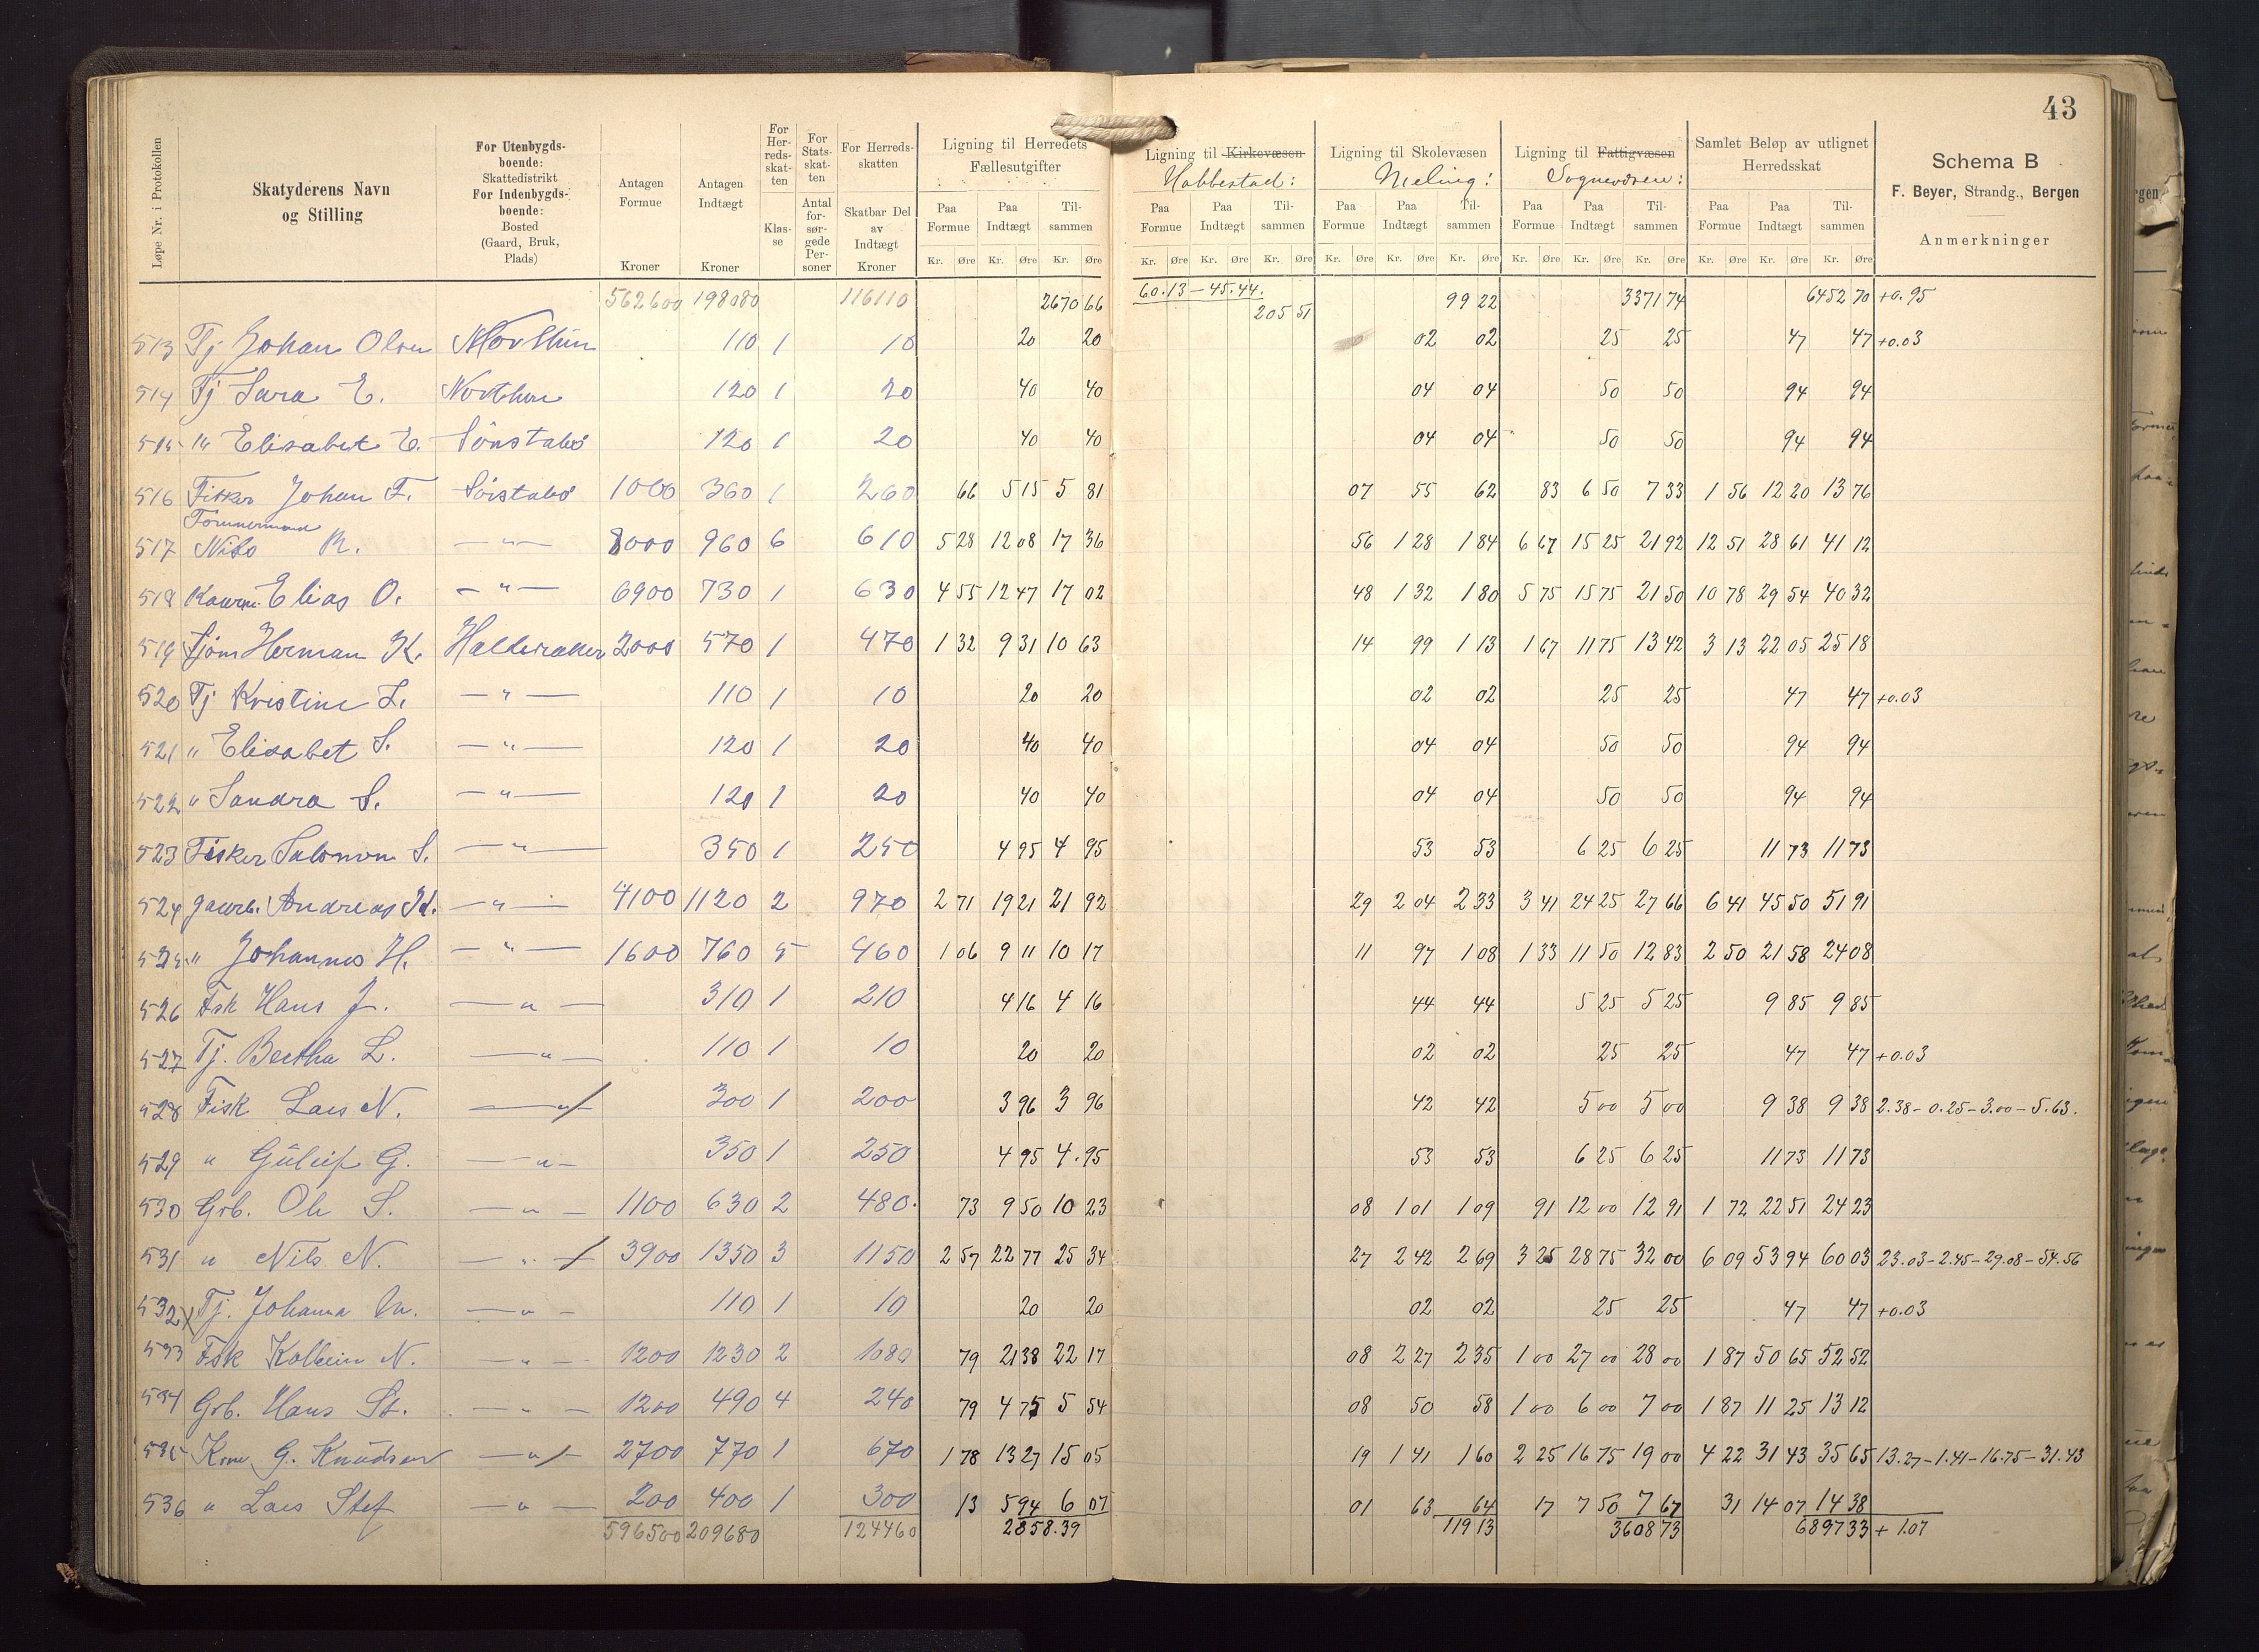 43
Løpe Nr. i Protokollen
Skatyderens Navn og Stilling
For Utenbygds-boende: Skattedistrikt For Indenbygds-boende: Bosted (Gaard, Bruk, Plads)
Antagen Formue Kroner
Antagen Indtægt Kroner
For Her-reds-skat-ten Klas-se
For Stats-skat-ten Antal for-sør-gede Per-soner
For Herreds-skatten Skatbar Del av Indtægt Kroner
Ligning til Herredets Fællesutgifter
Ligning til Kirkevæsen Habbestad:
Ligning til Skolevæsen Meling:
Ligning til Fattigvæsen Sognevæsen:
Samlet Beløp av utlignet Herredsskat
Schema B
F. Beyer, Strandg., Bergen
Anmerkninger
Paa Formue Paa Indtægt Til-sammen Paa Formue Paa Indtægt Til-sammen Paa Formue Paa Indtægt Til-sammen Paa Formue Paa Indtægt Til-sammen Paa Formue Paa Indtægt Til-sammen
Kr. Øre Kr. Øre Kr. Øre Kr. Øre Kr. Øre Kr. Øre Kr. Øre Kr. Øre Kr. Øre Kr. Øre Kr. Øre Kr. Øre Kr. Øre Kr. Øre Kr. Øre
562600 198080 116110 2670 66 60.13 – 45.44. 205 51 99 22 3371 74 6452 70 +0.95
513 Tj Johan Olsen 110 1 10 20 20 02 02 25 25 47 47 +0.03
514 Tj Sara E. 120 1 20 40 40 04 04 50 50 94 94
515 " Elisabet E. Sönstabö 120 1 20 40 40 04 04 50 50 94 94
516 Fisker Johan T. Sönstabö 1000 360 1 260 66 5 15 5 81 07 55 62 83 6 50 7 33 1 56 12 20 13 76
Tömmermand
517 Nils R. — " — 8000 960 6 610 5 28 12 08 17 36 56 1 28 1 84 6 67 15 25 21 92 12 51 28 61 41 12
518 Elias O. — " — 6900 730 1 630 4 55 12 47 17 02 48 1 32 1 80 5 75 15 75 21 50 10 78 29 54 40 32
519 Sjöm Herman K. Halderaker 2000 570 1 470 1 32 9 31 10 63 14 99 1 13 1 67 11 75 13 42 3 13 22 05 25 18
520 Tj Kristine L. — " — 110 1 10 20 20 02 02 25 25 47 47 +0.03
521 " Elisabet S. — " — 120 1 20 40 40 04 04 50 50 94 94
522 " Sandra S. — " — 120 1 20 40 40 04 04 50 50 94 94
523 Fisker Salomon S. — " — 350 1 250 4 95 4 95 53 53 6 25 6 25 11 73 11 73
524 Gaarb. Andreas Kl. — " — 4100 1120 2 970 2 71 19 21 21 92 29 2 04 2 33 3 41 24 25 27 66 6 41 45 50 51 91
525 " Johannes H. — " — 1600 760 5 460 1 06 9 11 10 17 11 97 1 08 1 33 11 50 12 83 2 50 21 58 24 08
526 Fsk Hans J. — " — 310 1 210 4 16 4 16 44 44 5 25 5 25 9 85 9 85
527 Tj. Bertha L. — " — 110 1 10 20 20 02 02 25 25 47 47 +0.03
528 Fisk Lars N. — " — 300 1 200 3 96 3 96 42 42 5 00 5 00 9 38 9 38 2.38 – 0.25 – 3.00 – 5.63.
529 " Guleif G. — " — 350 1 250 4 95 4.95 53 53 6 25 6 25 11 73 11 73
530 Grb. Ole S. — " — 1100 630 2 480. 73 9 50 10 23 08 1 01 1 09 91 12 00 12 91 1 72 22 51 24 23
531 " Nils N. — " — 3900 1350 3 1150 2 57 22 77 25 34 27 2 42 2 69 3 25 28 75 32 00 6 09 53 94 60 03 23.03 – 2.45 – 29.08 – 54.56
532 Tj. Johanna — " — 110 1 10 20 20 02 02 25 25 47 47 +0.03
533 Fsk Kolbein N. — " — 1200 1230 2 1080 79 21 38 22 17 08 2 27 2 35 1 00 27 00 28 00 1 87 50 65 52 52
534 Grb. Hans St. — " — 1200 490 4 240 79 4 75 5 54 08 50 58 1 00 6 00 7 00 1 87 11 25 13 12
535 G. Knudsen — " — 2700 770 1 670 1 78 13 27 15 05 19 1 41 1 60 2 25 16 75 19 00 4 22 31 43 35 65 13.27 – 1.41 – 16.75 – 31.43
536 " Lars Stef — " — 200 400 1 300 13 5 94 6 07 01 63 64 17 7 50 7 67 31 14 07 14 38
596500 209680 124460 2858.39 119 13 3608 73 6897 33 + 1.07